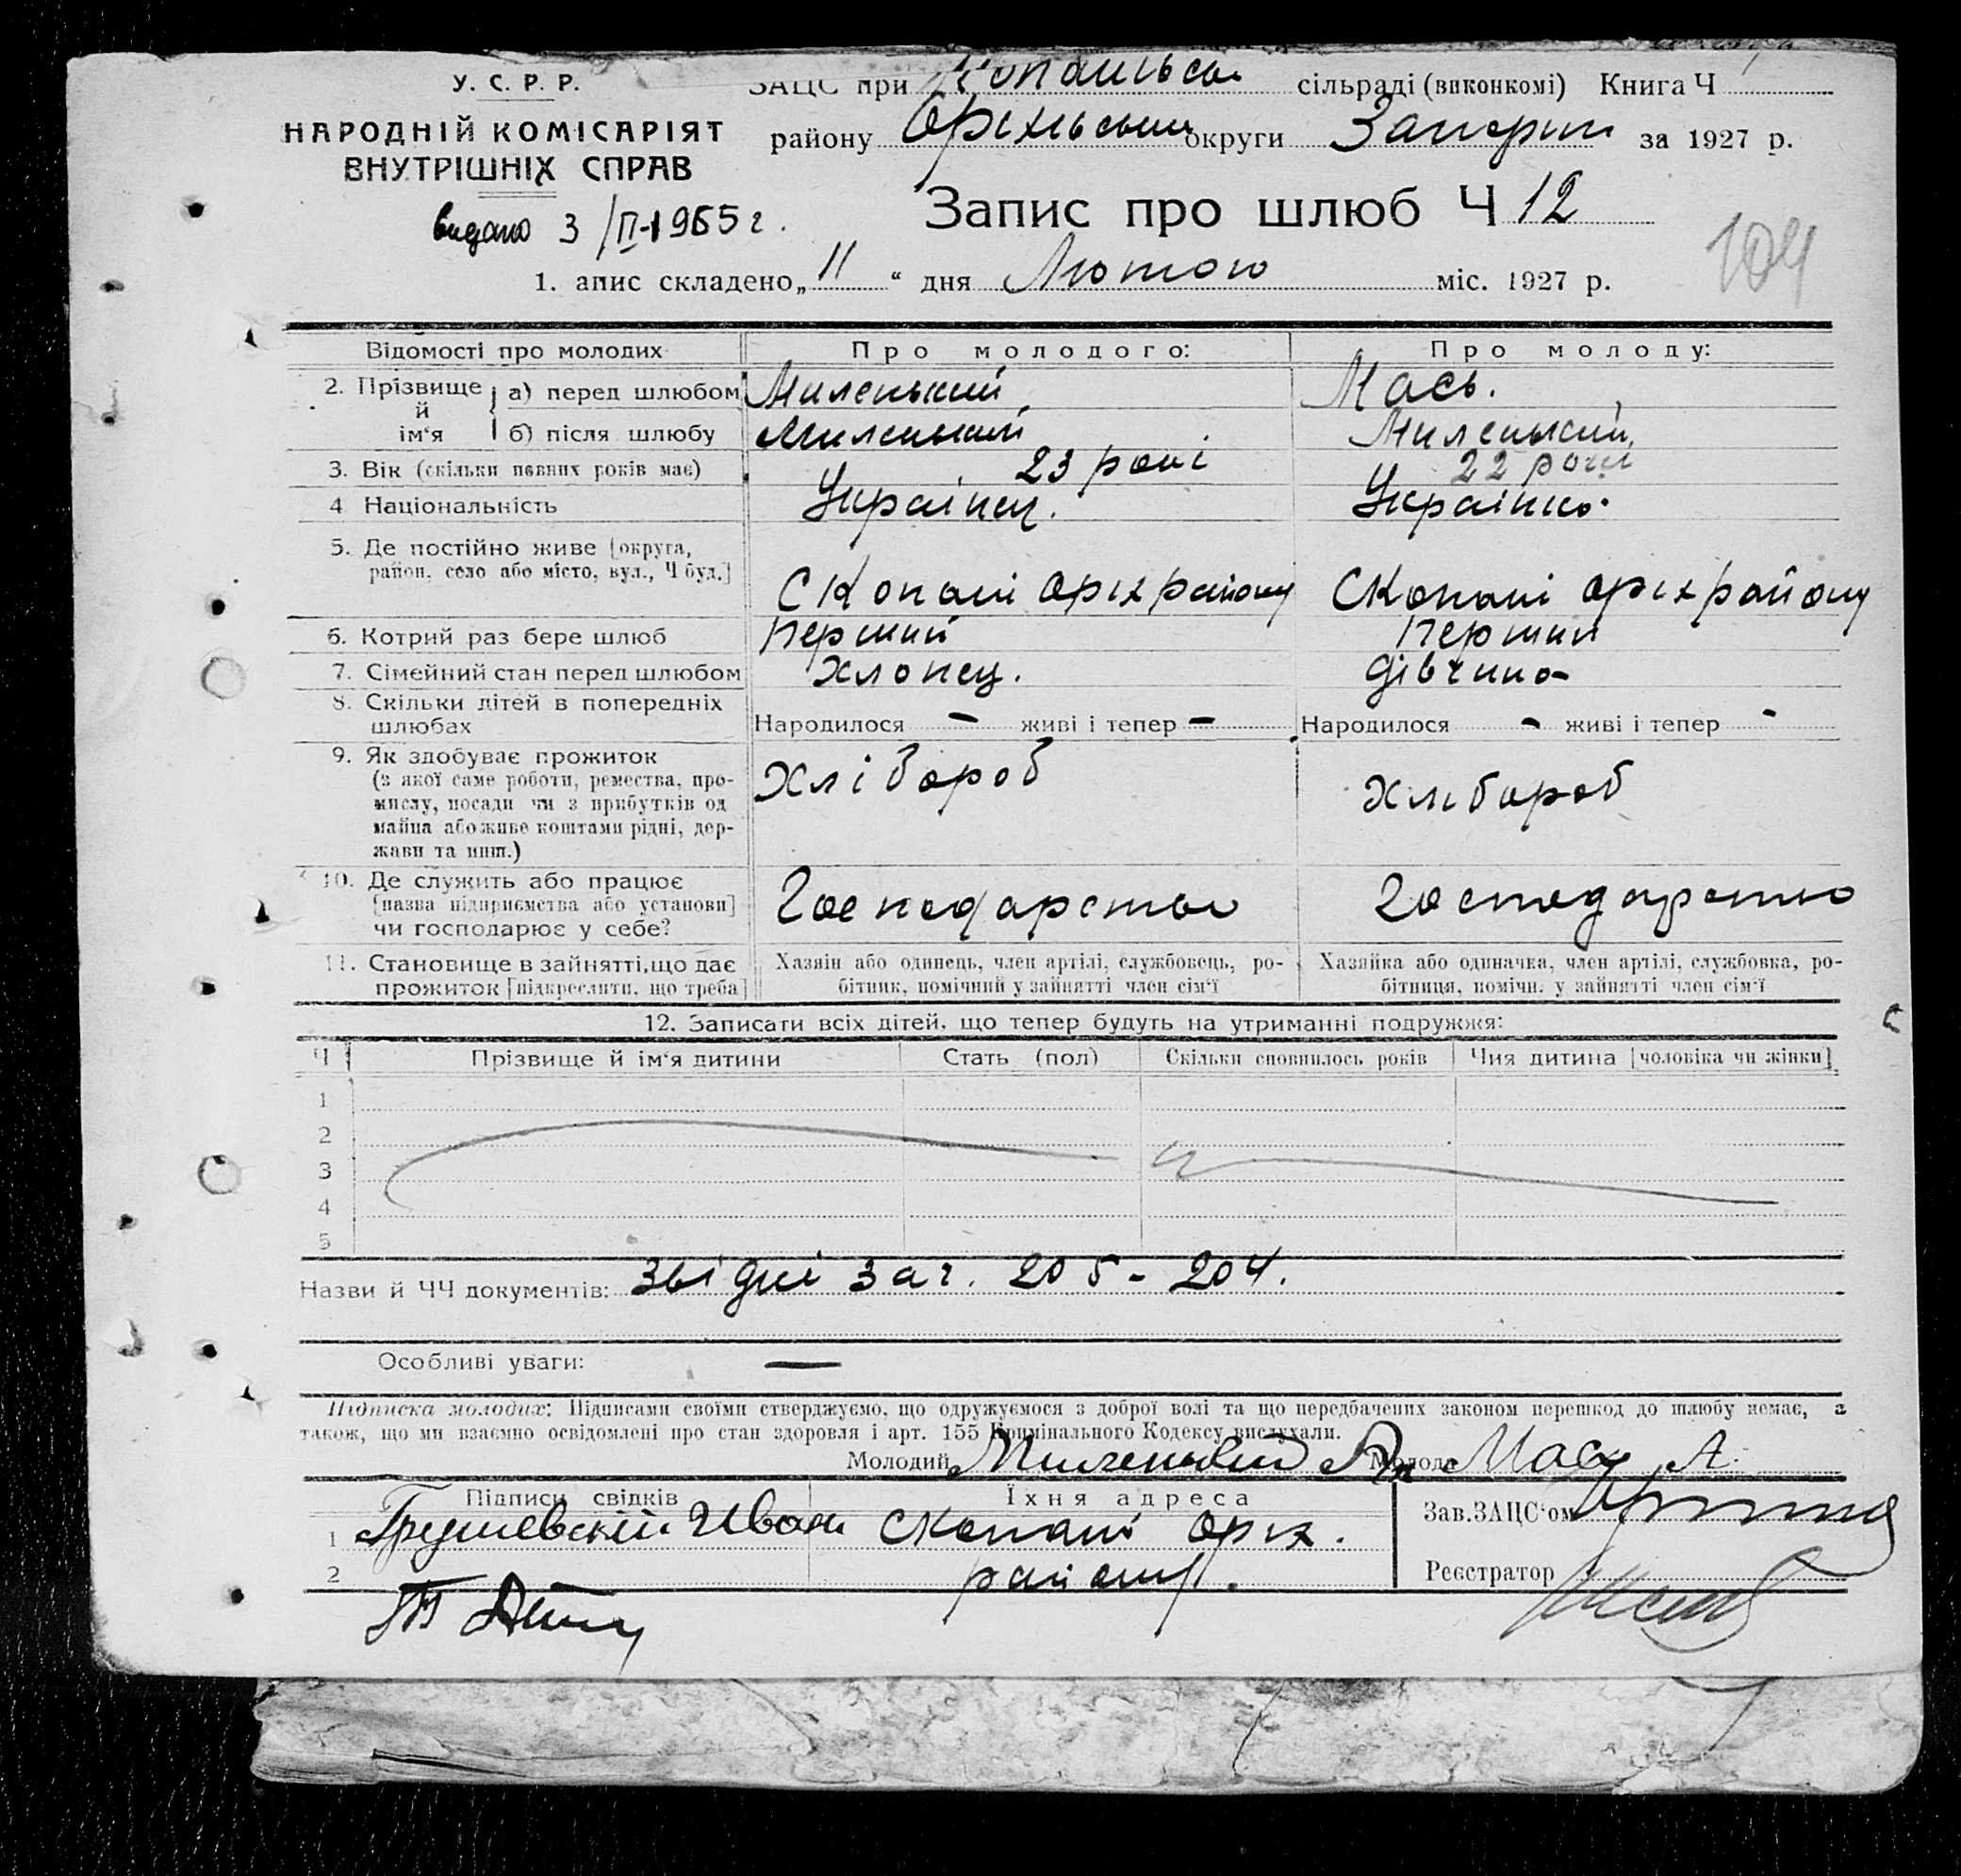 У. С. Р. Р.
НАРОДНІЙ КОМІСАРІЯТ
ВНУТРІШНІХ СПРАВ
видано 3/II-1965 г.
ЗАЦС при сільраді (виконкомі) Книга Ч
району Оріхівський округи за 1927 р.
Запис про шлюб Ч 12
104
1. апис складено „11“ дня Лютого міс. 1927 р.
Відомості про молодих Про молодого: Про молоду:
2. Прізвище й ім‘я а) перед шлюбом Миленький Мась.
б) після шлюбу Миленький Миленький
3. Вік (скільки певних років має) 23 рокі 22 роки
4 Національність Українец. Українка.
5. Де постійно живе [округа,
район, село або місто, вул., Ч буд.]
С Копані оріх району С Копані оріх району
6. Котрий раз бере шлюб Перший Перший
7. Сімейний стан перед шлюбом Хлопец. дівчина
8. Скільки дітей в попередніх
шлюбах Народилося — живі і тепер — Народилося - живі і тепер -
9. Як здобуває прожиток Хлібороб Хлибороб
(з якої саме роботи, ремества, про-
мислу, посади чи з прибутків од
майна або живе коштами рідні, дер-
жави та инш.)
10. Де служить або працює
[назва підприємства або установи]
чи господарює у себе? Господарство Господарство
11. Становище в зайнятті, що дає
прожиток [підкреслити, що треба]
Хазяїн або одинець, член артілі, службовець, ро-
бітник, помічний у зайнятті член сім‘ї
Хазяйка або одиначка, член артілі, службовка, ро-
бітниця, помічн. у зайнятті член сім‘ї
12. Записати всіх дітей, що тепер будуть на утриманні подружжя:
Ч Прізвище й ім‘я дитини Стать (пол) Скільки сповнилось років Чия дитина [чоловіка чи жінки]
1
2
3
4
5
Назви й ЧЧ документів: Звідкі за ч. 205 - 204.
Особливі уваги: —
Підписка молодих: Підписами своїми стверджуємо, що одружуємося з доброї волі та що передбачених законом перешкод до шлюбу немає, а
також, що ми взаємно освідомлені про стан здоровля і арт. 155 Кримінального Кодексу вислухали.
Молодий Миленький Молода Мась А.
Підписи свідків Їхня адреса
1 Грушевский Иван С Копані Оріх.
2 району.
Зав. ЗАЦС‘ом
Реєстратор